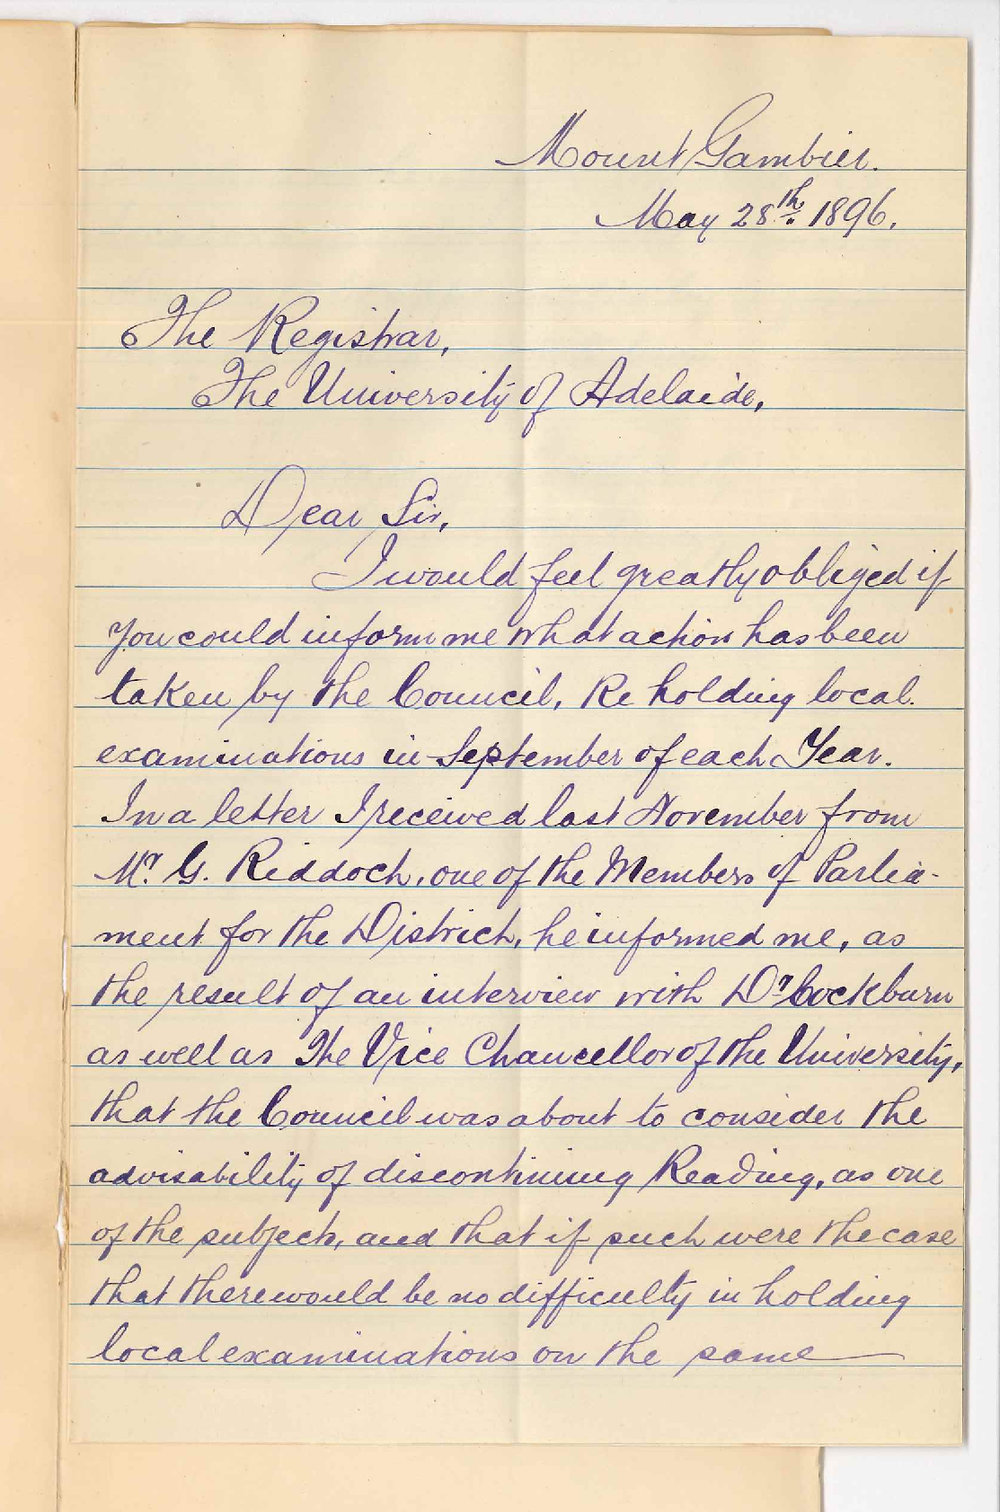 Mount Gambier.
May 28th. 1896.
The Registrar,
The University of Adelaide,
Dear Sir,
I would feel greatly obliged if
you could inform me what action has been
taken by the Council, Re holding local
examinations in September of each Year.
In a letter I received last November from
Mr. G. Riddoch, one of the Members of Parlia-
ment for the District, he informed me, as
the result of an interview with Dr Cockburn
as well as The Vice Chancellor of the University,
that the Council was about to consider the
advisability of discontinuing Reading, as one
of the subjects, and that if such were the case
that there would be no difficulty in holding
local examinations on the same